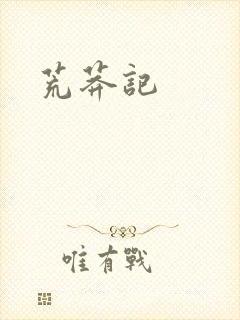 荒莽記
唯有戰